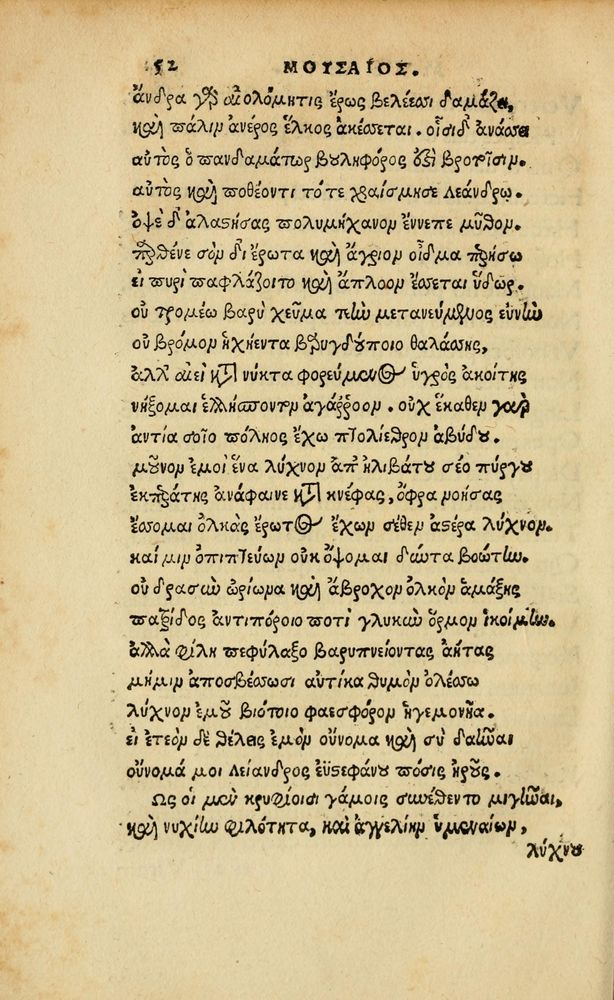 52 ΜΟΥΣΑΙΟΣ.
ἄνδρα γὰρ αἰολόμητις ἔρως βελέεσσι δαμάζει,
καὶ πάλιν ἀνέρος ἕλκος ἀκέσσεται. οἷσι δ' ἀνάσσει
αὐτὸς ὁ πανδαμάτωρ βουληφόρος ἐστὶ βροτοῖσιν.
αὐτὸς καὶ ποθέοντι τότε χραίσμησε Λεάνδρῳ.
ὀψὲ δ' ἀλαστήσας πολυμήχανον ἔννεπε μῦθον.
παρθένε σὸν δι' ἔρωτα καὶ ἄγριον οἶδμα περήσω
εἰ πυρὶ παφλάζοιτο καὶ ἄπλοον ἔσσεται ὕδωρ.
οὐ τρομέω βαρὺ χεῦμα τεὴν μετανεύμενος εὐνὴν
οὐ βρόμον ἠχήεντα βαρυγδούποιο θαλάσσης,
ἀλλ' αἰεὶ κατὰ νύκτα φορεύμενος ὑγρὸς ἀκοίτης
νήξομαι ἑλλήσποντον ἀγάρροον. οὐχ ἕκαθεν γὰρ
ἀντία σοῖο πόληος ἔχω πτολίεθρον ἀβύδου.
μοῦνον ἐμοὶ ἕνα λύχνον ἀπ' ἠλιβάτου σέο πύργου
ἐκπεράτης ἀνάφαινε κατὰ κνέφας, ὄφρα νοήσας
ἔσσομαι ὁλκὰς ἔρωτος ἔχων σέθεν ἀστέρα λύχνον.
καί μιν ὀπιπτεύων οὐκ ὄψομαι δύντα βοώτην.
οὐ θρασὺν ὠρίωνα καὶ ἄβροχον ὁλκὸν ἁμάξης
πατρίδος ἀντιπόροιο ποτὶ γλυκὺν ὅρμον ἱκοίμην.
ἀλλὰ φίλη πεφύλαξο βαρυπνείοντας ἀήτας
μή μιν ἀποσβέσσωσι αὐτίκα θυμὸν ὀλέσσω
λύχνον ἐμοῦ βιότοιο φαεσφόρον ἡγεμονῆα.
εἰ ἐτεὸν δὲ θέλεις ἐμὸν οὔνομα καὶ σὺ δαῆναι
οὔνομά μοι Λείανδρος ἐϋστεφάνου πόσις ἡροῦς.
Ὣς οἱ μὲν κρυφίοισι γάμοις συνέθεντο μιγῆναι,
καὶ νυχίην φιλότητα, καὶ ἀγγελίην ὑμεναίων,
λύχνου